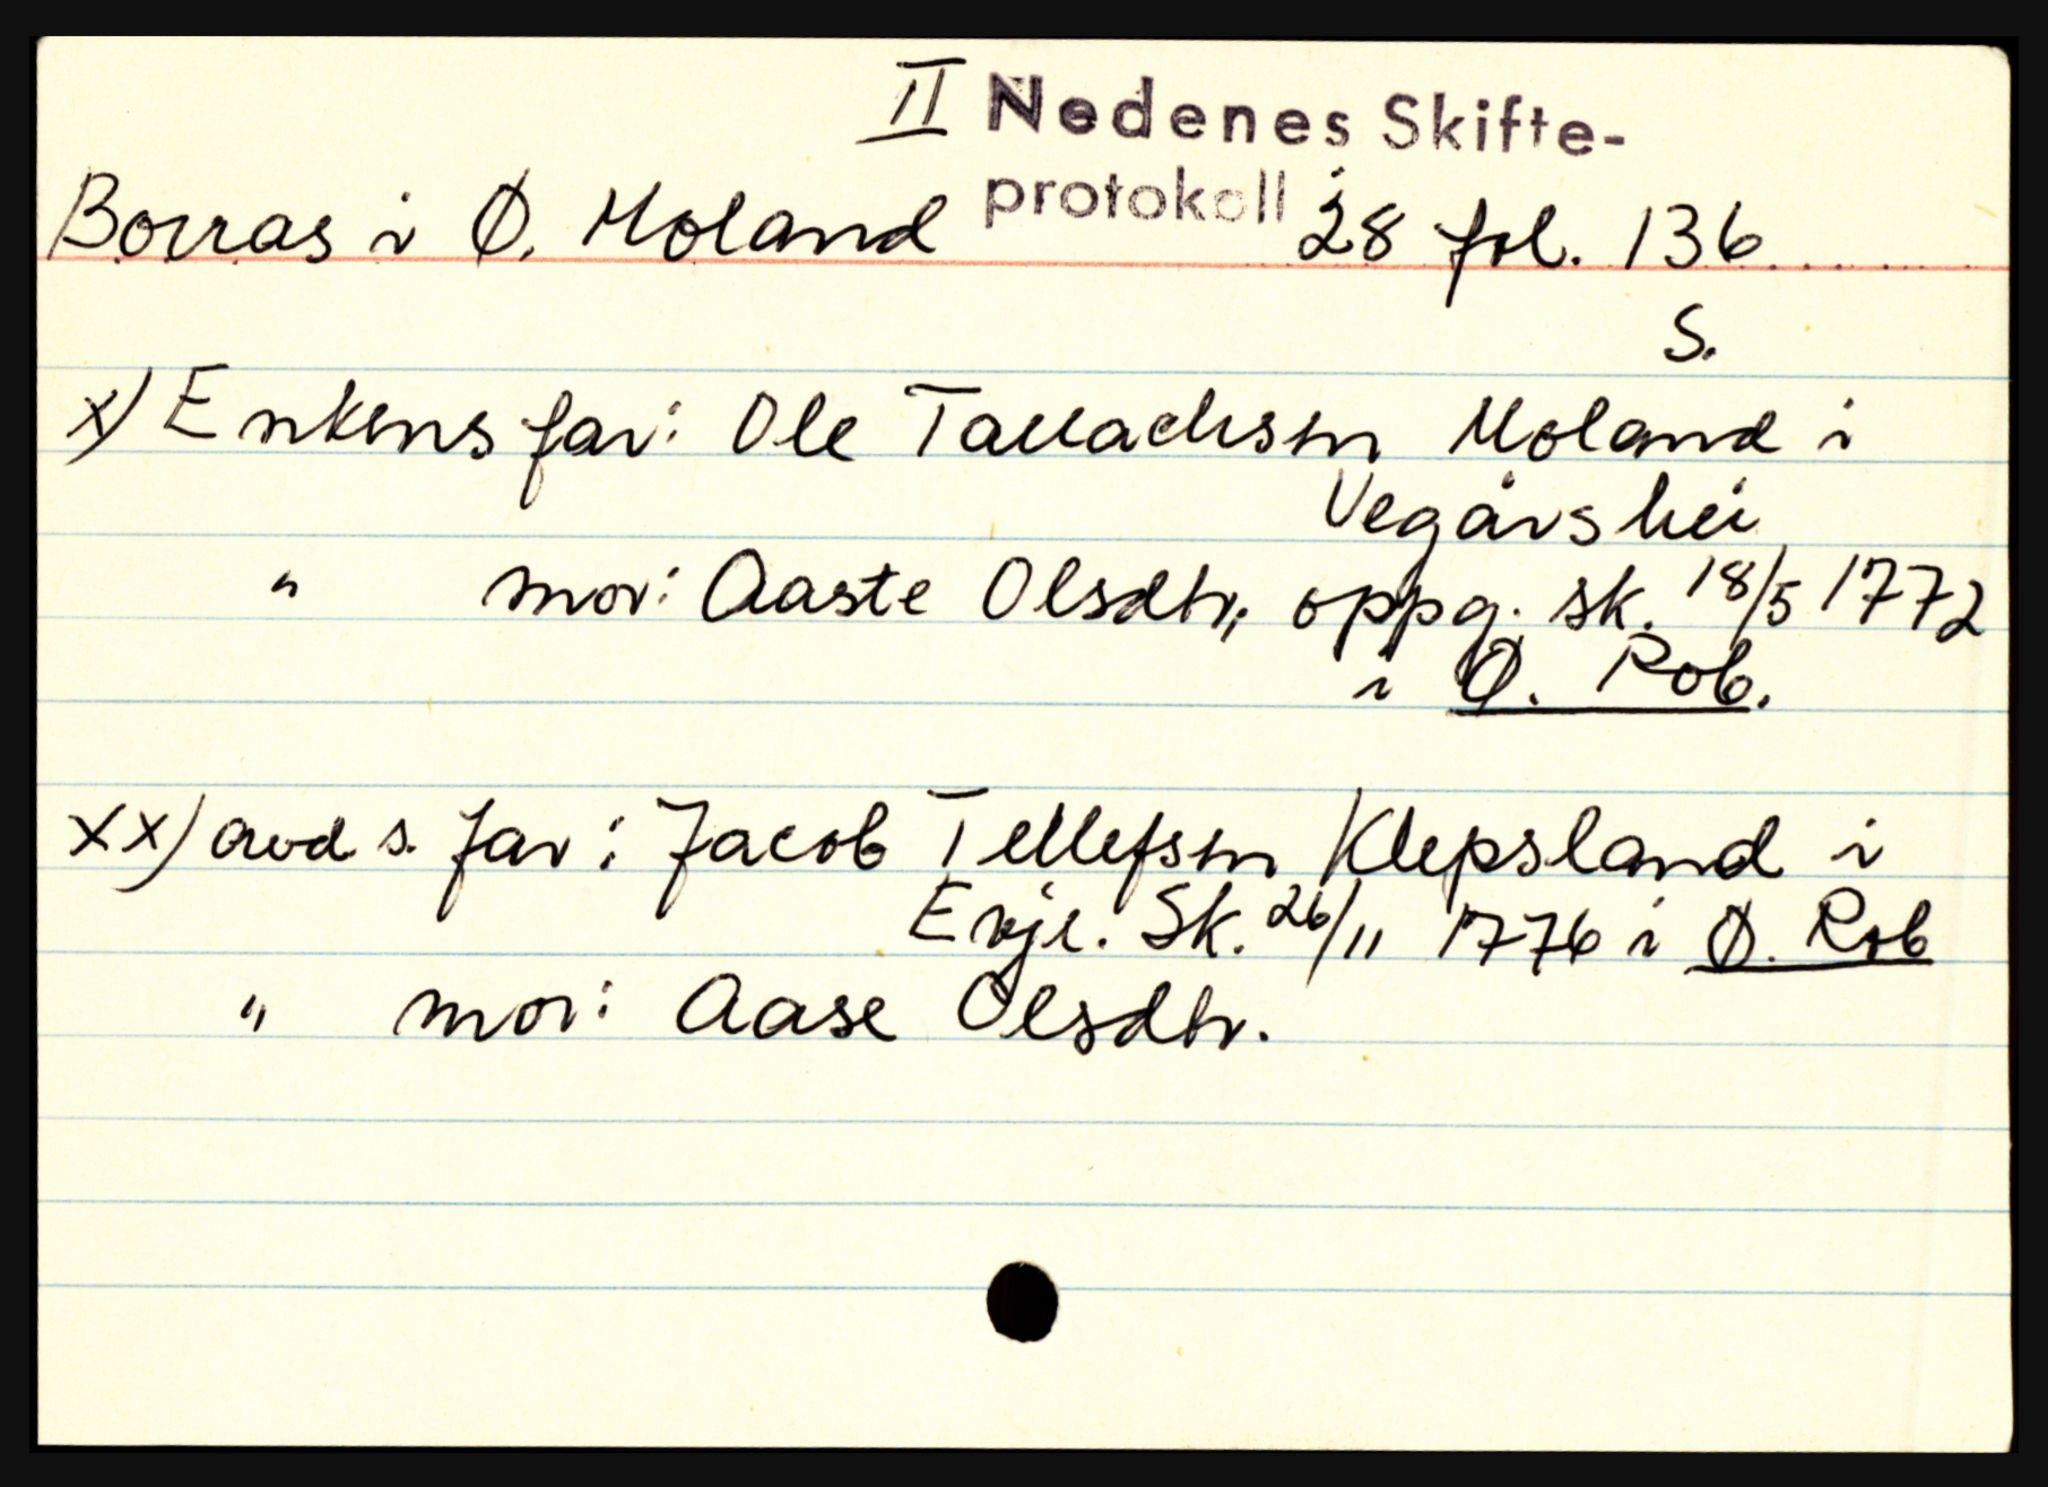 II Nedenes Skifte-
protokoll
Borras i Ø. Moland 28 fol. 136
S.
x) Enkens far: Ole Tallachsen Moland i
Vegårshei
" mor: Aaste Olsdtr, oppg. sk. 18/5 1772
i Ø. Rob.
xx) avd. s. far: Jacob Tellefsen Klepsland i
Evje. Sk. 26/11 1776 i Ø. Rob
" mor: Aase Olsdtr.